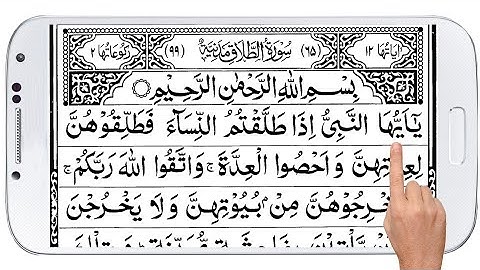 اٰيَاتُهَا ١٢ (٦٥) سُوْرَةُ الطَّلَاقِ مَدَنِيَّةٌ (٩٩) رُكُوْعَاتُهَا ٢
بِسْمِ اللهِ الرَّحْمٰنِ الرَّحِيْمِ
يٰۤاَيُّهَا النَّبِىُّ اِذَا طَلَّقْتُمُ النِّسَآءَ فَطَلِّقُوْهُنَّ
لِعِدَّتِهِنَّ وَاَحْصُوا الْعِدَّةَ ۚ وَاتَّقُوا اللهَ رَبَّكُمْ ۚ
مِنْۢ بُيُوْتِهِنَّ وَلَا يَخْرُجْنَ